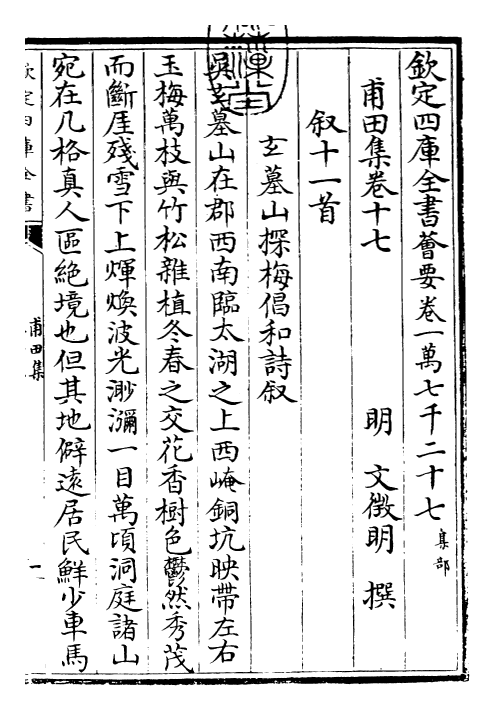 欽定四庫全書薈要卷一萬七千二十七 集部
甫田集卷十七 明 文徵明 撰
叙十一首
玄墓山探梅倡和詩叙
吳玄墓山在郡西南臨太湖之上西崦銅坑映帶左右
玉梅萬枝與竹松雜植冬春之交花香樹色鬱然秀茂
而斷厓殘雪下上煇煥波光渺瀰一目萬頃洞庭諸山
宛在几格真人區絶境也但其地僻遠居民鮮少車馬
欽定四庫全書
甫田集
一